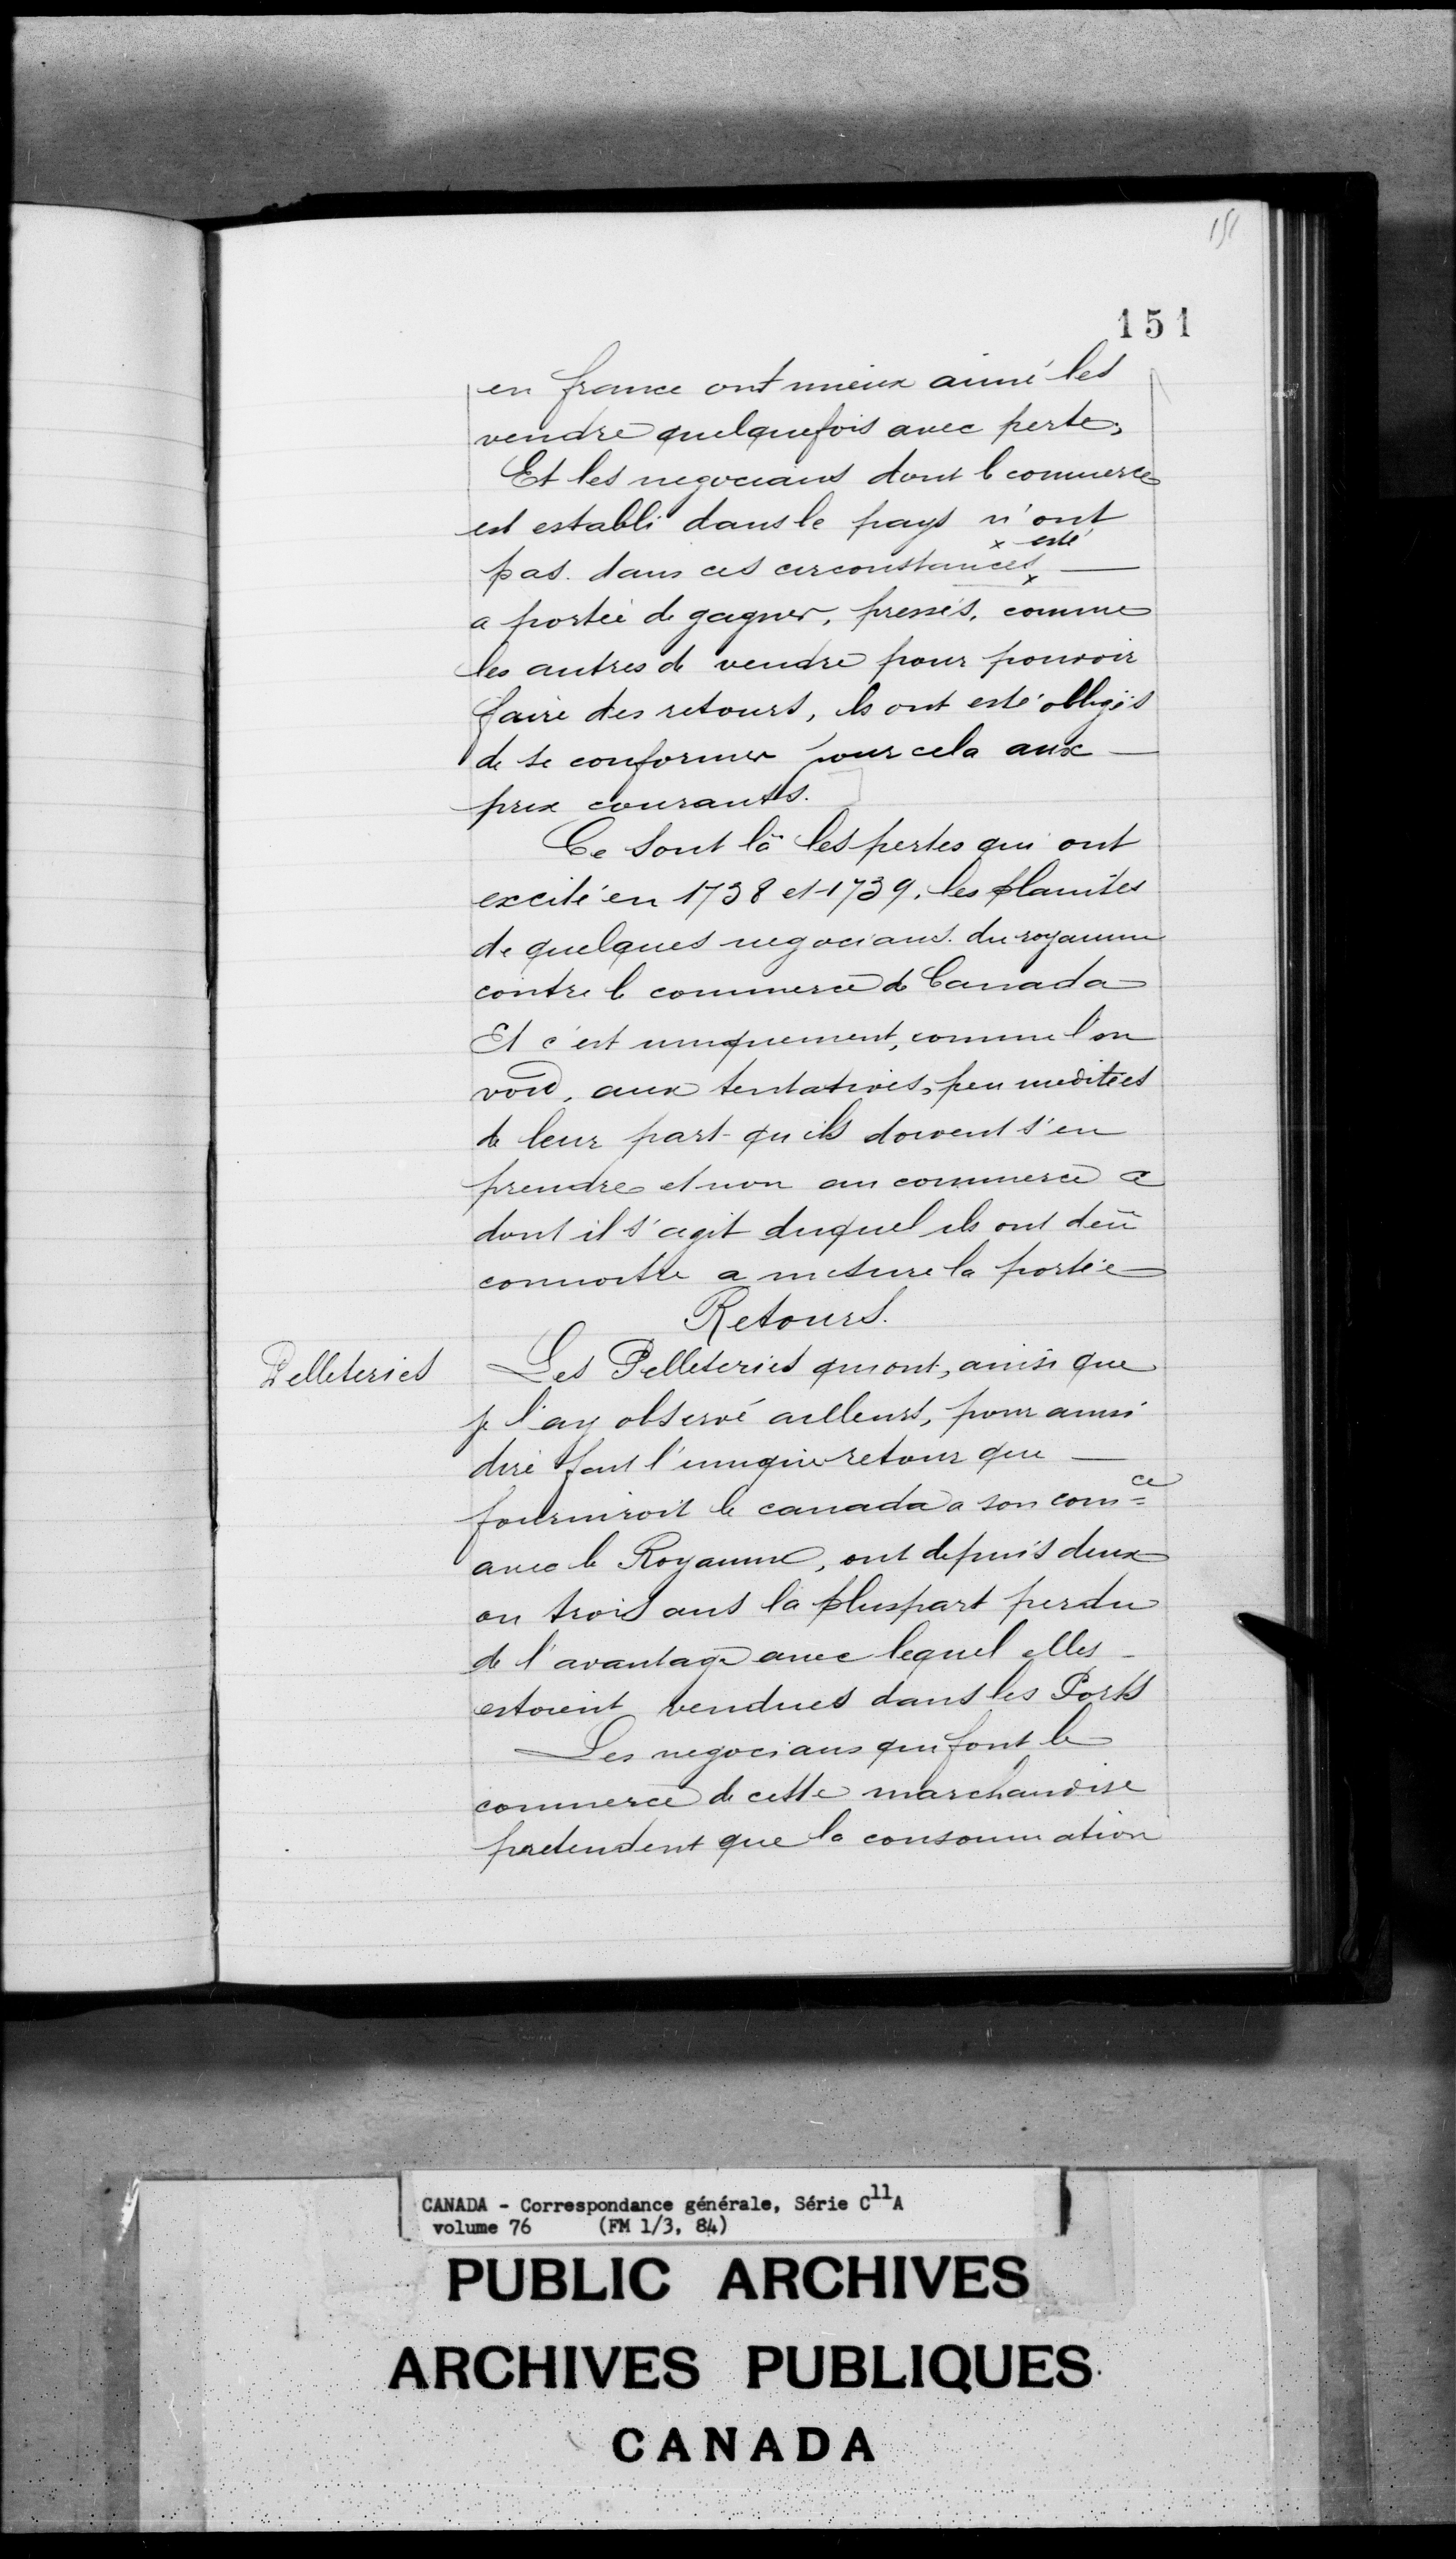 151
151
en france ont mieux aimé les
vendre quelquefois avec perte,
Et les negocians dont le commerce
est establi dans le pays n'ont
x esté
pas dans ces circonstances x —
a portée de gagner, pressés, comme
les autres de vendre pour pouvoir
faire des retours, ils ont esté obligés
de se conformer pour cela aux —
prix courants.
Ce sont là les pertes qui ont
excité en 1738 et 1739, les plaintes
de quelques negocians du royaume
contre le commerce de Canada
Et c'est uniquement, comme l'on
void, aux tentatives, peu meditées
de leur part qu'ils doivent s'en
prendre et non au commerce
dont il s'agit duquel ils ont deü
connoitre a mesure la portée
Retours.
Pelleteries
Les Pelleteries qui ont, ainsi que
je l'ay observé ailleurs, pour ainsi
dire fait l'unique retour que —
fourniroit le canada a son comce
avec le Royaume, ont depuis deux
ou trois ans la pluspart perdu
de l'avantage avec lequel elles —
estoient vendues dans les Ports
Les negocians qui font le
commerce de cette marchandise
pretendent que la consommation
CANADA - Correspondance générale, Série C11A
volume 76 (FM 1/3, 84)
PUBLIC ARCHIVES
ARCHIVES PUBLIQUES
CANADA